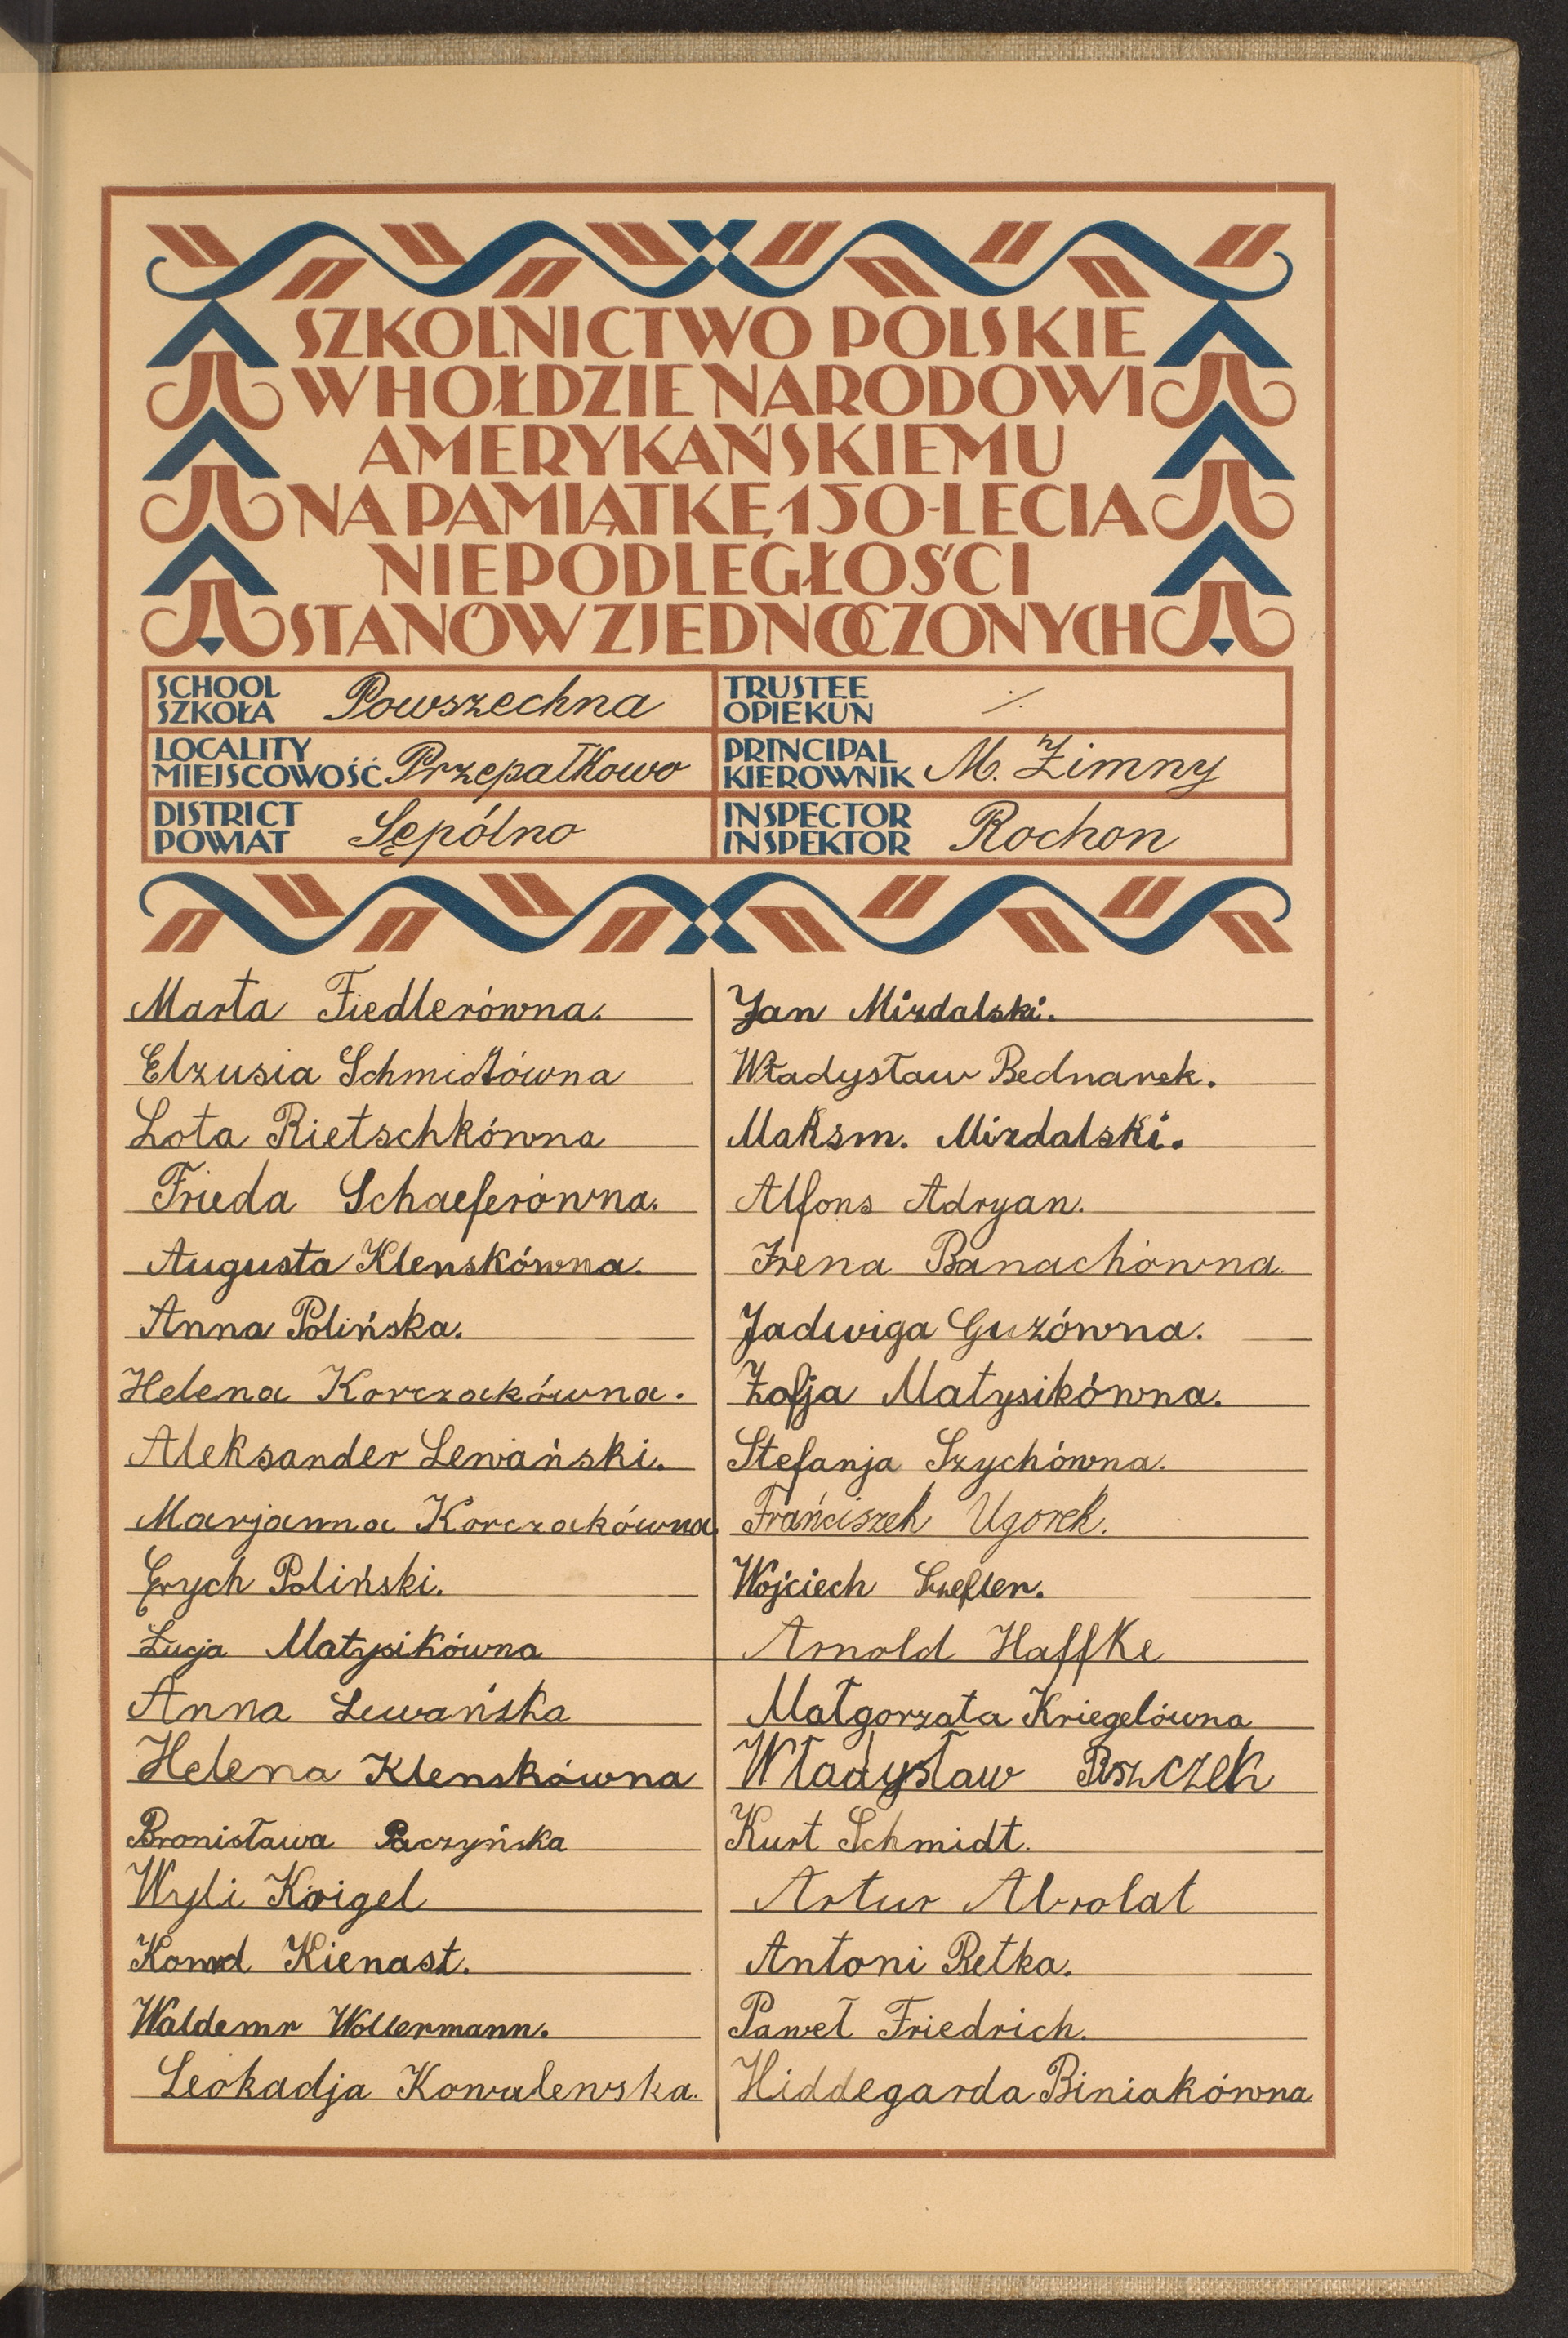 SZKOLNICTWO POLSKIE
W HOŁDZIE NARODOWI
AMERYKAŃSKIEMU
NA PAMIĄTKĘ 150-LECIA
NIEPODLEGŁOŚCI
STANÓW ZJEDNOCZONYCH
SCHOOL
SZKOŁA Powszechna
TRUSTEE
OPIEKUN
LOCALITY
MIEJSCOWOŚĆ Przepałkowo
PRINCIPAL
KIEROWNIK M. Zimny
DISTRICT
POWIAT Sępólno
INSPECTOR
INSPEKTOR Rochon
Marta Fiedlerówna.
Elzusia Schmidtówna
Lota Rietschkówna
Frieda Schaeferówna.
Augusta Klenskówna.
Anna Polińska.
Helena Korczakówna.
Aleksander Lewański.
Marjanna Korczakówna
Erych Poliński.
Łucja Matysikówna
Anna Lewańska
Helena Klenskówna
Bronisława Paczyńska
Wyli Krigel
Konrad Kienast.
Waldemr Wollermann.
Leokadja Kowalewska.
Jan Mizdalski.
Władysław Bednarek.
Maksm. Mizdalski.
Alfons Adryan.
Irena Banachówna
Jadwiga Guzówna.
Zofja Matysikówna.
Stefanja Szychówna.
Frańciszek Ugorek.
Wojciech Szefler.
Arnold Haffke
Małgorzata Kriegelówna
Władysław
Kurt Schmidt.
Artur Abrolat
Antoni Retka.
Paweł Friedrich.
Hiddegarda Biniakówna